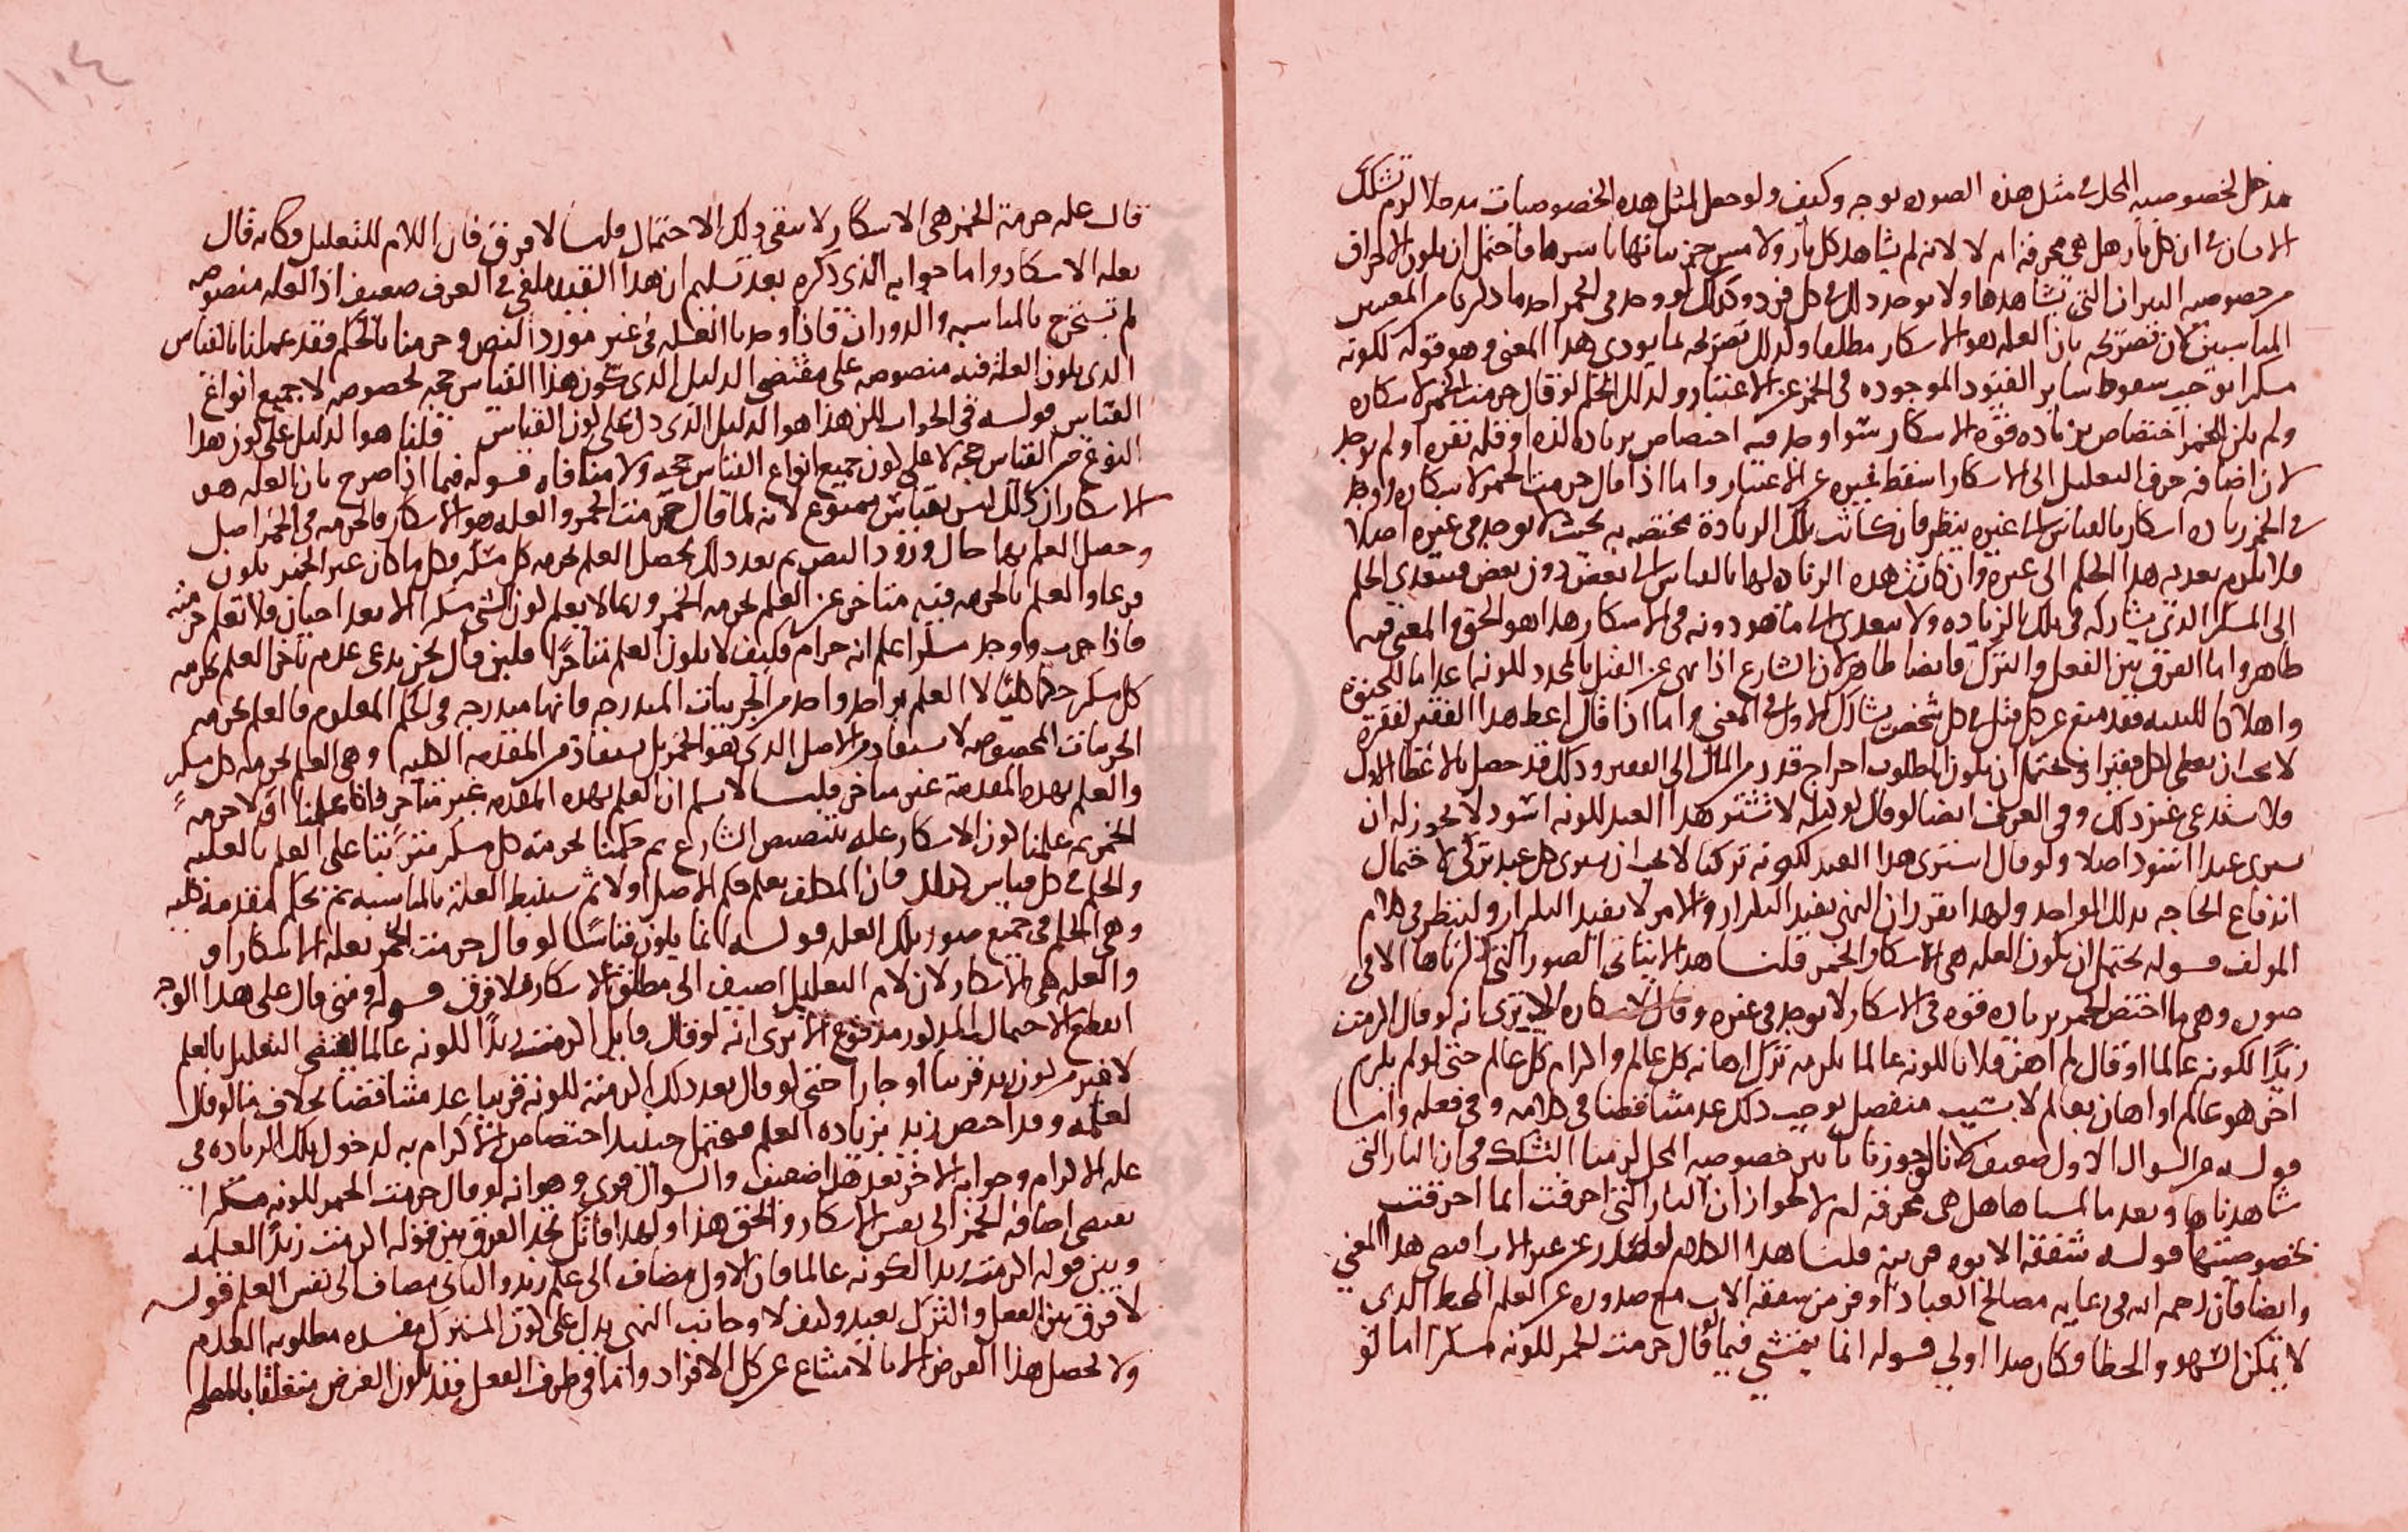 مدخل لخصوصيه المحل في مثل هذه الصوره بوجه وكيف ولو جعل لمثل هذه الخصوصيات مدخلا لزم تشكك
الانسان في ان كل نار هل هي محرقة ام لا لانه لم يشاهد كل نار ولا ميز جزيياتها باسرها فاحتمل ان يكون الاحراق
من خصوصيه النيران التي شاهدها ولا يوجد ذلك في كل فرد وكذلك لو وجد في الخمر احد ما ذكرنا من المعنيين
المناسبين كان تصريحه بان العله هو الاسكار مطلقا وكذلك تصريحه بما يودي هذا المعنى وهو قوله لكونه
مسكرا يوجب سقوط ساير القيود الموجوده في الخمر عن الاعتبار وكذلك الحكم لو قال حرمت الخمر لاسكاره
ولم يكن للخمر اختصاص بزياده قوة الاسكار سوا وجد فيه اختصاص بزياده لذه او قله نفره او لم يوجد
لان اضافه حرف التعليل الى الاسكار اسقط غيره عن الاعتبار واما اذا قال حرمت الخمر لاسكاره ووجد
في الخمر زياده اسكار بالقياس الى غيره ينظر فان كانت تلك الزيادة مختصه به بحيث لا يوجد في غيره اصلا
فلا يلزم تعديه هذا الحكم الى غيره وان كانت هذه الزياده لها بالقياس الى بعض دون بعض فيتعدى الحكم
الى المسكر الذي يشاركه في تلك الزياده ولا يتعدى الى ما هو دونه في الاسكار هذا هو الحق والمعنى فيه
ظاهر واما الفرق بين الفعل والترك فايضا ظاهر لان الشارع اذا نهى عن القتل بالمحدد لكونه اعداما للحيوة
واهلاكا للبنيه فقد منع عن كل قتل في كل شخص يشارك الاول في المعنى واما اذا قال اعط هذا الفقير لفقره
لا يجب ان يعطى لكل فقير اذ يحتمل ان يكون المطلوب اخراج قدر من المال الى الفقير وذلك قد حصل بالاعطا الاول
فلا يستدعي غير ذلك وفي العرف ايضا لو قال لوكيله لا تشتر هذا العبد لكونه اسود لا يجوز له ان
يشري عبدا اسود اصلا ولو قال اشتري هذا العبد لكونه تركيا لا يجب ان يشري كل عبد تركي لاحتمال
اندفاع الحاجه بذلك الواحد ولهذا تقرر ان النهي يفيد التكرار والامر لا يفيد التكرار ولينظر في كلام
المولف قوله يحتمل ان يكون العله هي الاسكار والخمر قلنا هذا لا يتاتى الصور التي ذكرناها الا في
صوره وهي ما اختص الخمر بزياده قوه في الاسكار لا يوجد في غيره وقال لاسكاره الا يرى انه لو قال اكرمت
زيدا لكونه عالما او قال لم اهن فلانا لكونه عالما يلزمه ترك اهانه كل عالم واكرام كل عالم حتى لو لم يكرم
اخر هو عالم او اهان بعالم لا بسبب منفصل يوجب ذلك عد متناقضا في كلامه وفي فعله وانما
قوله من السوال الاول ضعيف لانا لو جوزنا تاثير خصوصيه المحل لزمنا التشكك في ان النار التي
شاهدناها وبعد ما لمسناها هل هي محرقه ام لا لجواز ان النار التي احرقت انما احرقت
بخصوصيتها قوله شفقه الابوه قرينه قلنا هذا الكلام لو صدر عن غير الاب اقتضى هذا المعنى
وايضا فان رحمه الله في رعايه مصالح العباد اوفر من شفقه الاب مع صدوره عن العله المحيط الذي
لا يمكن السهو والخطا فكان هذا اولى قوله انما يتمشى فيما لو قال حرمت الخمر لكونه مسكرا اما لو
١٠٤
قال عله حرمة الخمر هي الاسكار لا يبقى ذلك الاحتمال قلنا لا فرق فان اللام للتعليل فكانه قال
بعله الاسكار واما جوابه الذي ذكره بعد تسليم ان هذا القيد ملغى في العرف ضعيف اذ العله منصوصه
لم تستخرج بالمناسبه والدوران فاذا وجدنا العله في غير مورد النص وحرمنا بالحكم فقد عملنا بالقياس
الذي يكون العلة فيه منصوصه على مقتضى الدليل الذي يكون هذا القياس حجه لخصوصه لا جميع انواع
القياس قوله في الجواب لكن هذا هو الدليل الذي دل على كون القياس قلنا هو الدليل على كون هذا
النوع من القياس حجه لا على كون جميع انواع القياس حجه ولا منافاه قوله فيما اذا صرح بان العله هو
الاسكار ان ذلك ليس بقياس ممنوع لانه لما قال حرمت الخمر والعله هو الاسكار فالحرمه في الخمر اصل
وحصل العلم بها حال ورود النص ثم بعد ذلك يحصل العلم بحرمه كل مسكر وكل ما كان غير الخمر يكون
فرعا والعلم بالحرمه فيه متاخر عن العلم بحرمه الخمر وربما لا يعلم كون الشي مسكرا الا بعد احيان فلا تعلم حرمته
فاذا جرب ووجد مسكرا علم انه حرام فكيف لا يكون العلم متاخرا فلين قال نحن ندعي عدم تاخر العلم بحرمه
كل مسكر حكما كليا لا العلم بواحد واحد من الجزييات المندرجه فانها مندرجه في الحكم المعلوم فالعلم بحرمه
الجزييات المخصوصه لا يستفاد من الاصل الذي هو الخمر بل يستفاد من المقدمه الكليه وهي العلم بحرمه كل مسكر
والعلم بهذه المقدمة غير متاخر قلنا لا نسلم ان العلم بهذه المقدمه غير متاخر فانا علمنا اولا حرمة
الخمر ثم علمنا كون الاسكار عله بتنصيص الشارع ثم حكمنا بحرمة كل مسكر مترتبا على العلم بالعليه
والحكم في كل قياس كذلك فان المكلف يعلم حكم الاصل اولا ثم يستنبط العلة بالمناسبه ثم يحكم بمقدمة كليه
وهي الحكم في جميع صور تلك العله قوله انما يكون قياسا لو قال حرمت الخمر بعله الاسكار او
والعله هي الاسكار لان لام التعليل اضيف الى مطلق الاسكار فلا فرق قوله ومتى قال على هذا الوجه
انقطع الاحتمال المذكور مدفوع الا يرى انه لو قال قايل اكرمت زيدا لكونه عالما اقتضى التعليل بالعلم
لا غير من كون زيد قريبا او جارا حتى لو قال بعد ذلك اكرمته لكونه قريبا عد متناقضا بخلاف ما لو قال
لعلمه وقد اختص زيد بزياده العلم فيحتمل حينيذ اختصاص الاكرام به لدخول تلك الزياده في
عله الاكرام وجوابه الاخر بعد هذا ضعيف والسوال قوي وهو انه لو قال حرمت الخمر لكونه مسكرا
يقتضي اضافه الخمر الى نفس الاسكار والحق هذا ولهذا قابل تجد الفرق بين قوله اكرمت زيدا لعلمه
وبين قوله اكرمت زيدا لكونه عالما فان الاول مضاف الى علم زيد والثاني مضاف الى نفس العلم قوله
لا فرق بين الفعل والترك بعيد وكيف لا وجانب النهي يدل على كون المنهي مفسده مطلوبه العدم
ولا يحصل هذا الغرض الا بالامتناع عن كل الافراد واما في طرف الفعل فقد يكون الغرض متعلقا بالمصلحه